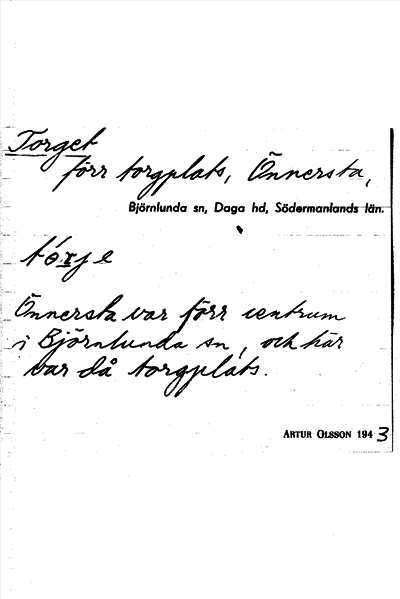 Torget
förr torgplats, Önnersta,
Björnlunda sn, Daga hd, Södermanlands län.
Önnersta var förr centrum
i Björnlunda sn, och här
var då torgplats.
ARTUR OLSSON 1943